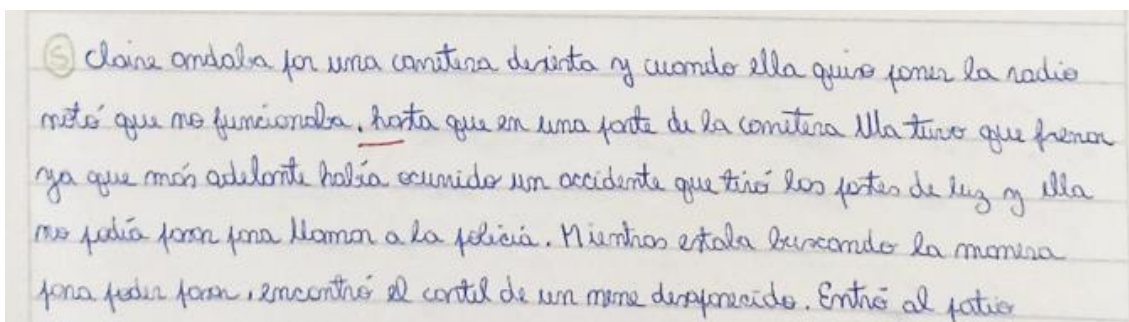 ⑤ Claire andaba por una carretera desierta y cuando ella quiso poner la radio
notó que no funcionaba, hasta que en una parte de la carretera Ella tuvo que frenar
ya que más adelante había ocurrido un accidente que tiró los postes de luz y ella
no podía pasar para llamar a la policía. Mientras estaba buscando la manera
para poder pasar, encontró el cartel de un nene desaparecido. Entró al patio